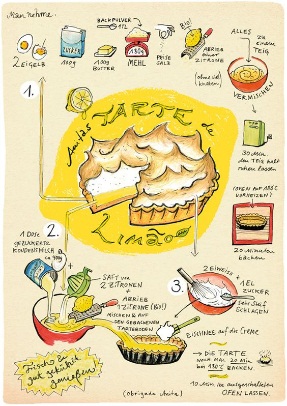 Man nehme:
2 EIGELB
ZUCKER
100g
100g
BUTTER
BACKPULVER
1TL
180g
MEHL
PRISE
SALZ
Bio!
ABRIEB
einer
ZITRONE
ALLES
ZU
einem
TEIG
VERMISCHEN
30 Min
den TEIG kalt
ruhen lassen
OFEN AUF 180°C
VORHEIZEN!
20 minuten
backen
1.
Anitas
TARTE de
Limão
2.
1 DOSE
gezuckerte
KONDENSMILCH
SAFT von
2 ZITRONEN
ABRIEB
1 ZITRONE (Bio!)
MISCHEN & AUF
den GEBACKENEN
TARTEBODEN
3.
2 EIWEISS +
1 EL
ZUCKER
SEHR Steif
SCHLAGEN
BISCHNEE auf die Creme
DIE TARTE
noch mal 20 Min
bei 180°C BACKEN.
10 Min im ausgeschalteten
OFEN LASSEN.
Frisch &
gut gekühlt
genießen
(obrigada Anita)